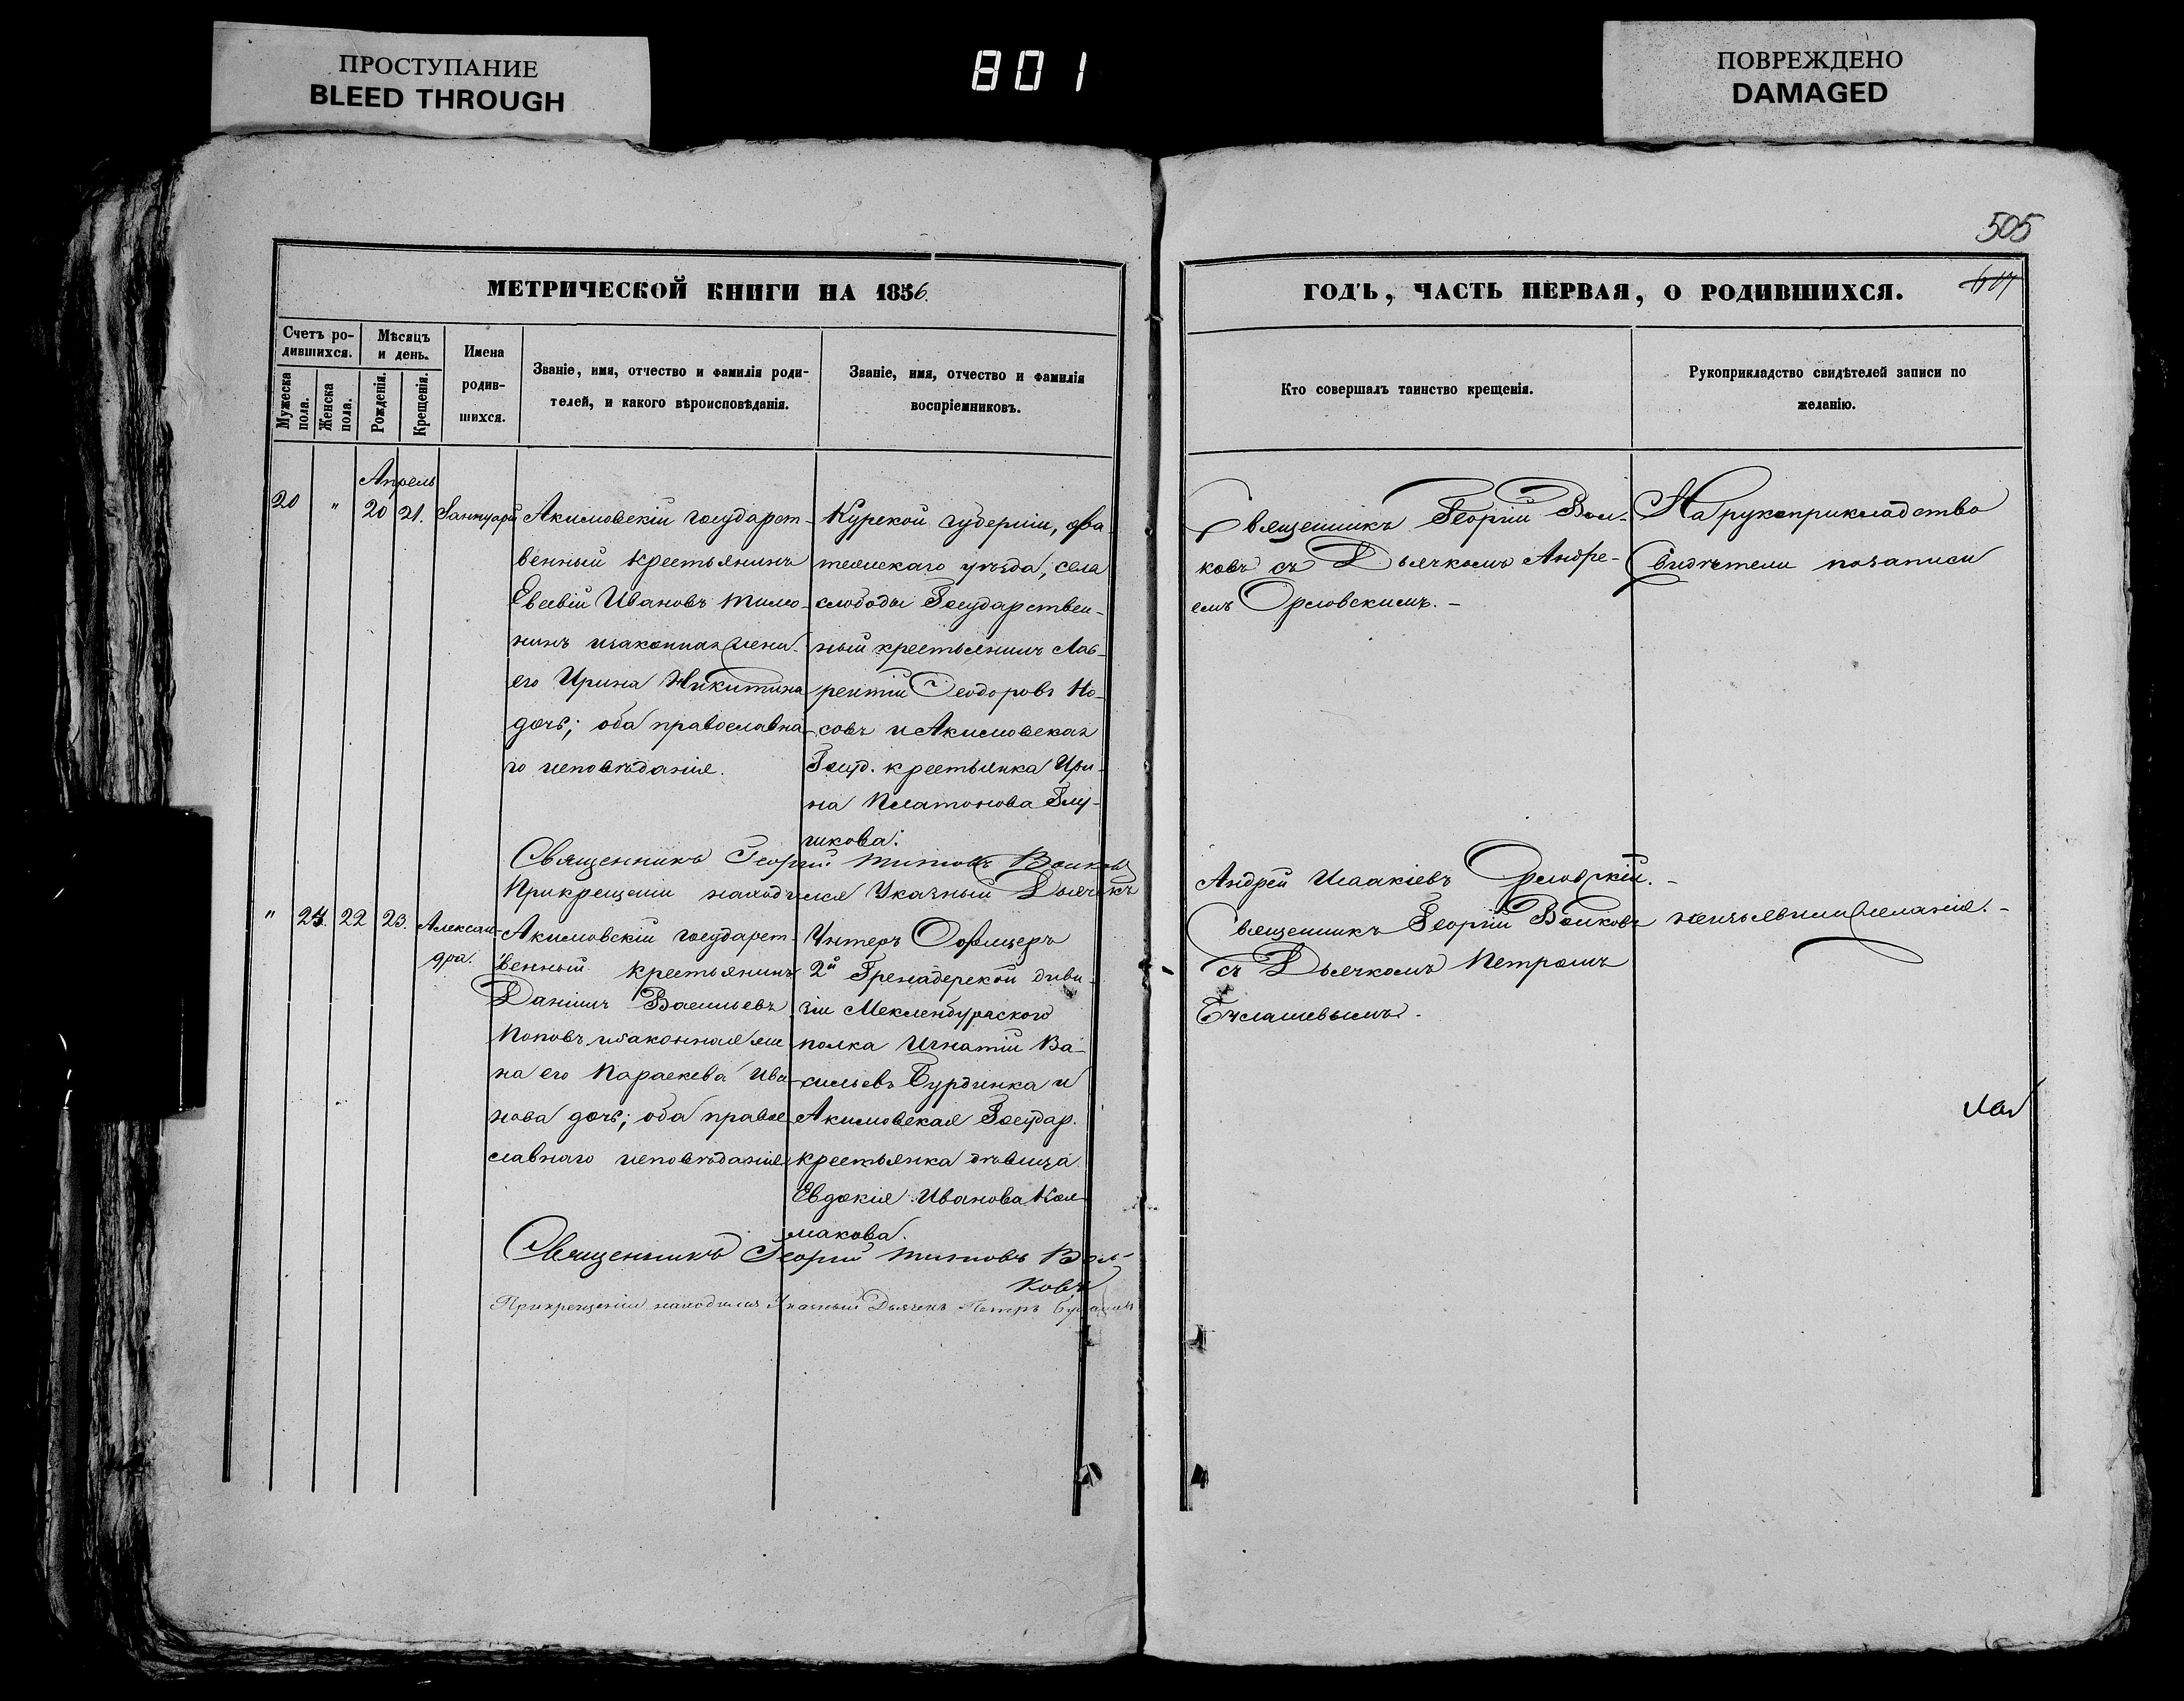 ПРОСТУПАНИЕ
BLEED THROUGH
801
ПОВРЕЖДЕНО
DAMAGED
505
МЕТРИЧЕСКОЙ КНИГИ НА 1856.
Счетъ ро-
дившихся.
Мужеска
пола.
Женска
пола.
Мѣсяцъ
и день.
Рожденія.
Крещенія.
Имена
родив-
шихся.
Званіе, имя, отчество и фамилія роди-
телей, и какого вѣроисповѣданія.
Званіе, имя, отчество и фамилія
воспріемниковъ.
ГОДЪ, ЧАСТЬ ПЕРВАЯ, О РОДИВШИХСЯ.
Кто совершалъ таинство крещенія.
Рукоприкладство свидѣтелей записи по
желанію.
Апрель
20 " 20 21. Іаннуарій
Акимовскій государст-
венный крестьянинъ
Евсевій Ивановъ
изаконная жена
его Ирина Никитина
дочь; оба православна
го исповѣданія.
Курской губерніи,
уѣзда, села
слободы Государствен-
ный крестьянинъ Лав-
рентій Ѳеодоровъ Но-
совъ и Акимовская
Госуд. крестьянка Ири-
на Платонова Глу-
шкова.
Священникъ Георгій Вол-
ковъ съ Дьячкомъ Андре-
емъ Орловскимъ. -
На рукоприкладство
Свидѣтели позаписи
Священникъ Георгій Титовъ Волковъ
Прикрещеніи находился Указный Дьячекъ
Андрей Исаакіевъ Орловскій. -
" 24. 22 23. Алексан-
дра.
Акимовскій государст-
венный крестьянинъ
Даніилъ Васильевъ
Поповъ изаконная же
на его Параскева Ива
нова дочь; оба право
славнаго исповѣданія
Унтеръ Офицеръ
2й Гренадерской диви-
зіи Мекленбургскаго
полка Игнатій Ва-
сильевъ Бурдинка и
Акимовская Государ.
крестьянка дѣвица
Евдокія Иванова Кол-
макова.
Священникъ Георгій Волковъ
съ Дьячкомъ Петромъ
Бѣлашевымъ.
неизъявили желанія. -
Священникъ Георгій Титовъ Вол-
ковъ
Прикрещеніи находился Указный Дьячекъ Петръ